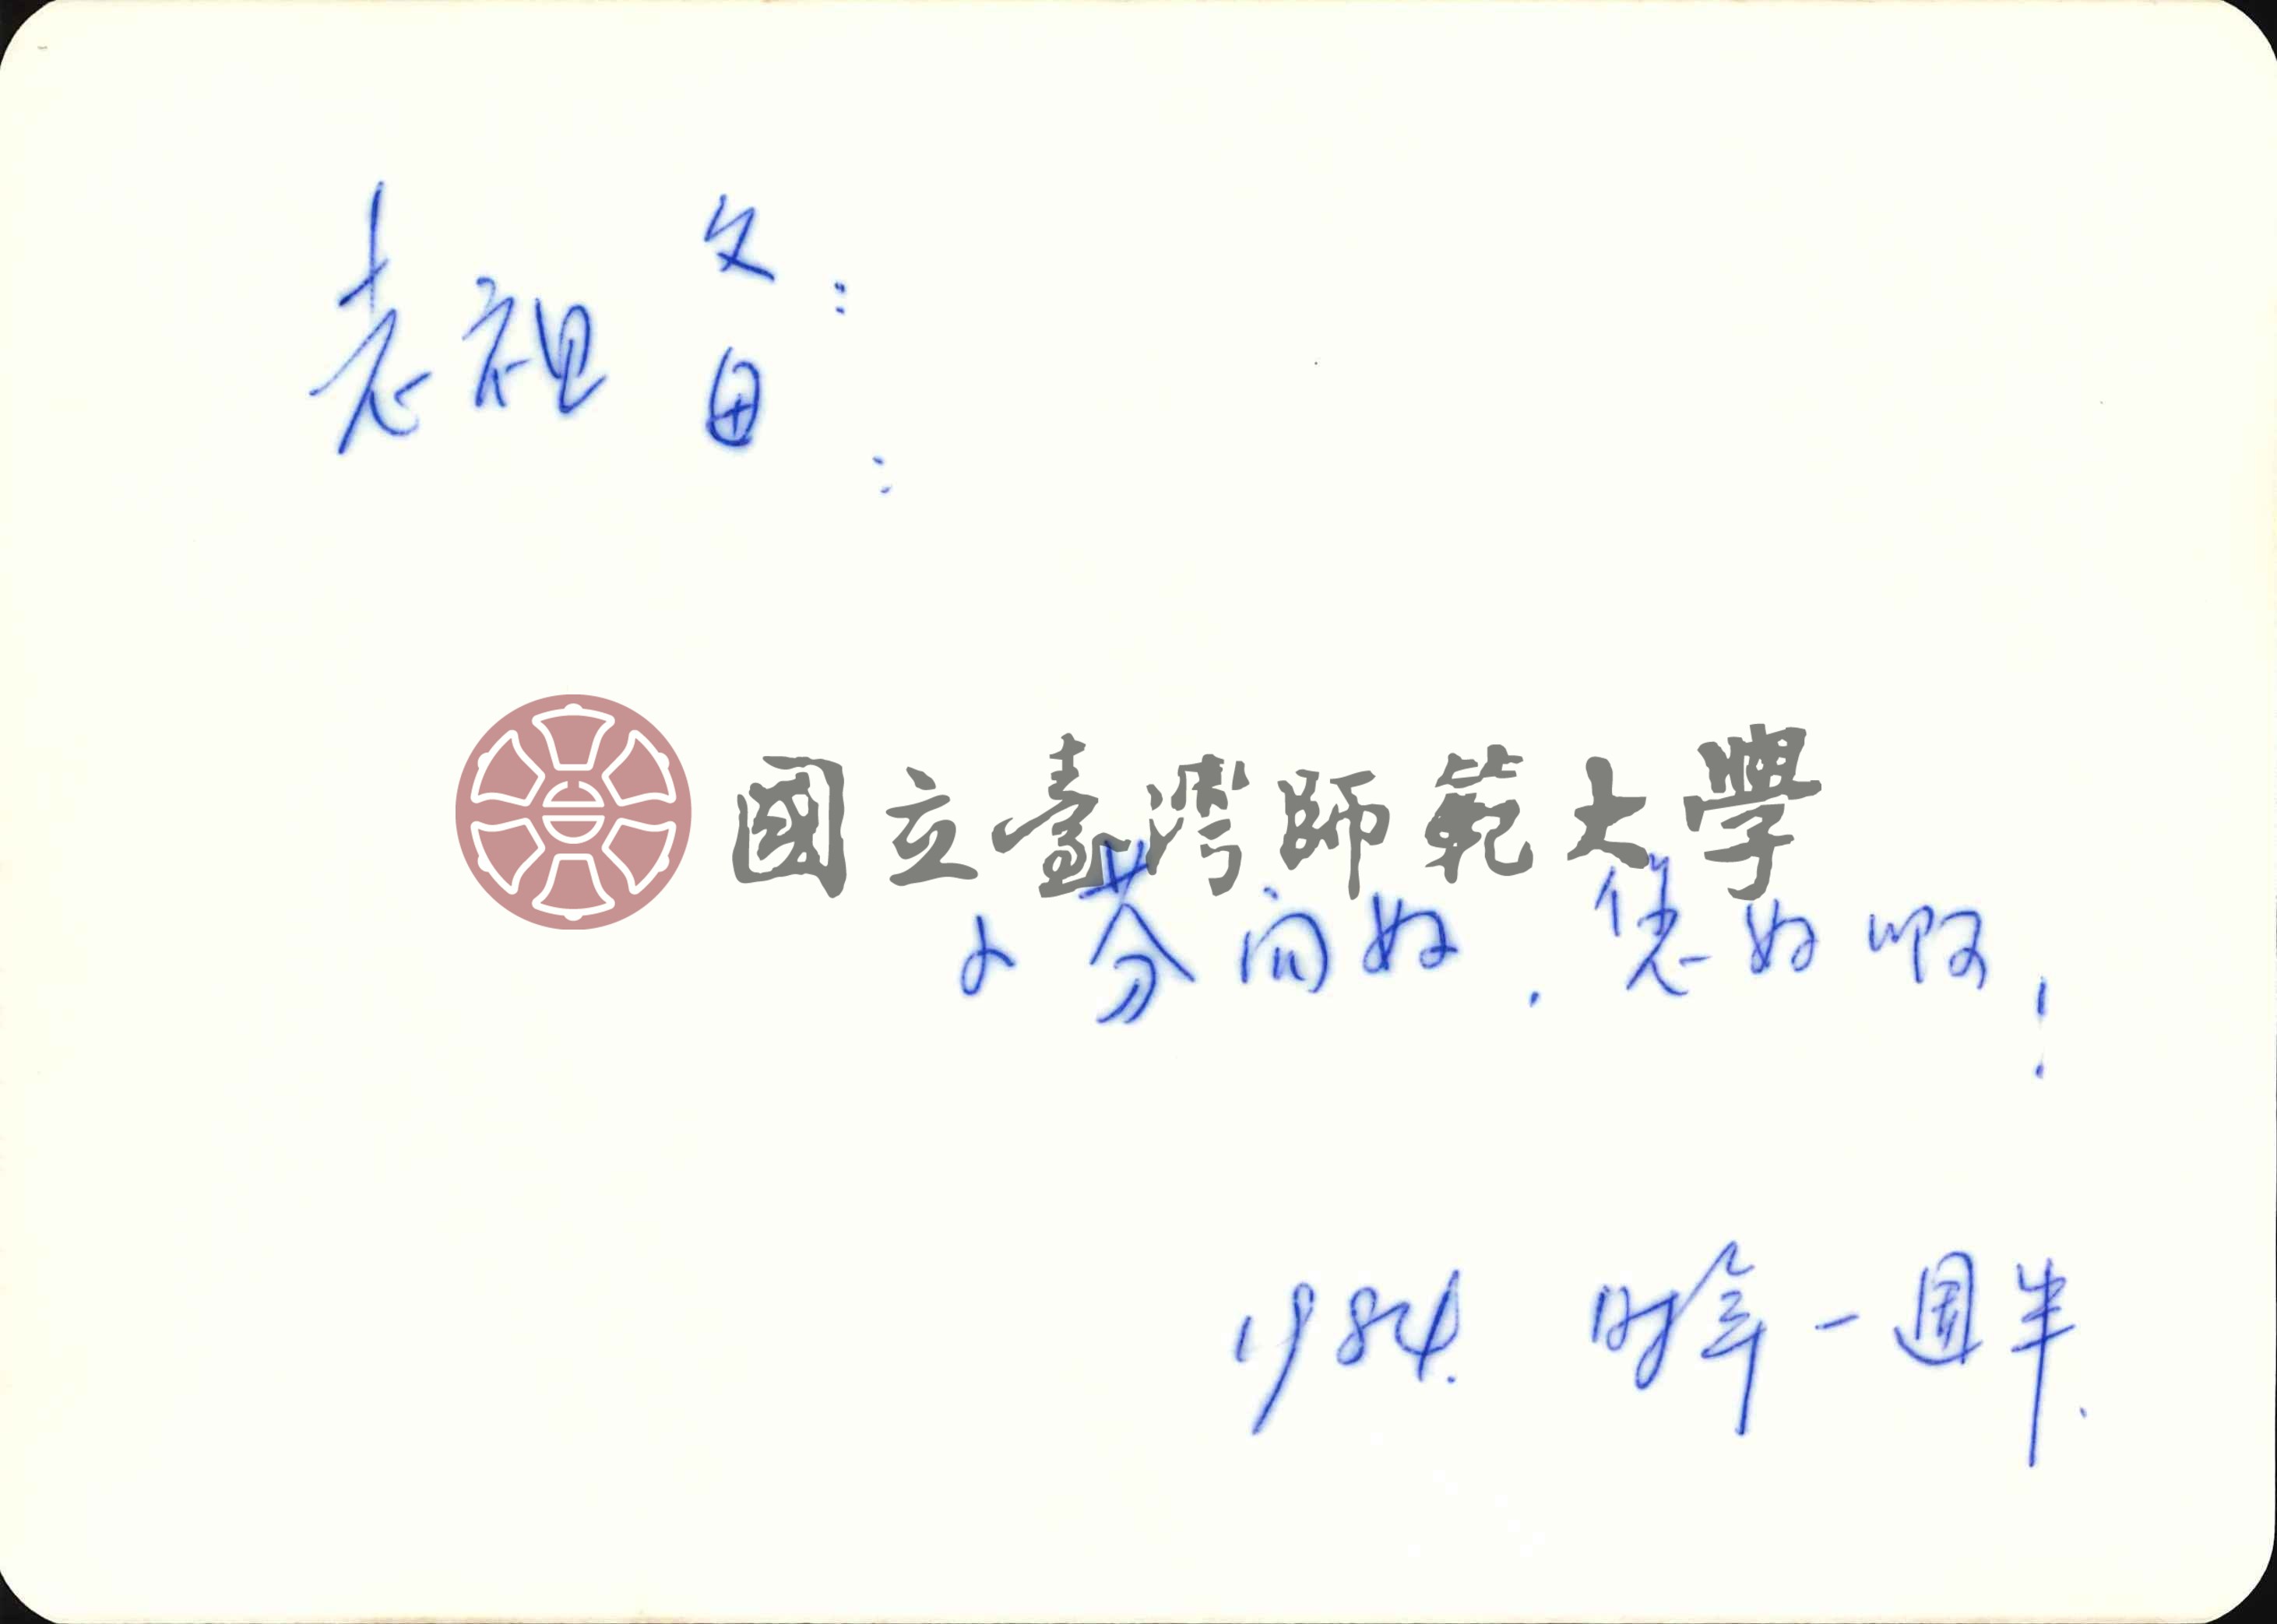 老祖父：
母：
國立臺灣師範大學
小芬问好，您好啊！
1984. 时年一週半.